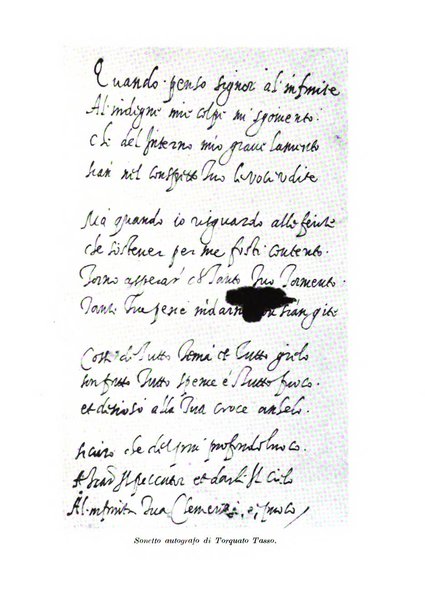 Quando penso signor al infinite
Al indigne mie colpe mi sgomento.
che del Interno mio grave lamento
sian nel conspetto Tuo le voci udite
Ma quando io risguardo alle ferite
che sostener per me fosti contento.
Torno a sperar ch Tanto Tuo Tormento.
Tante Tue pene indarno non sian gite
Cosi di Tutto Tema et Tutto gielo
son fatto Tutto speme e Tutto fuoco.
et desioso alla Tua croce anelo.
sicuro che del piu profondo luoco.
peccator et darli il cielo
Al infinita Tua Clemenza, e, puoco
Sonetto autografo di Torquato Tasso.